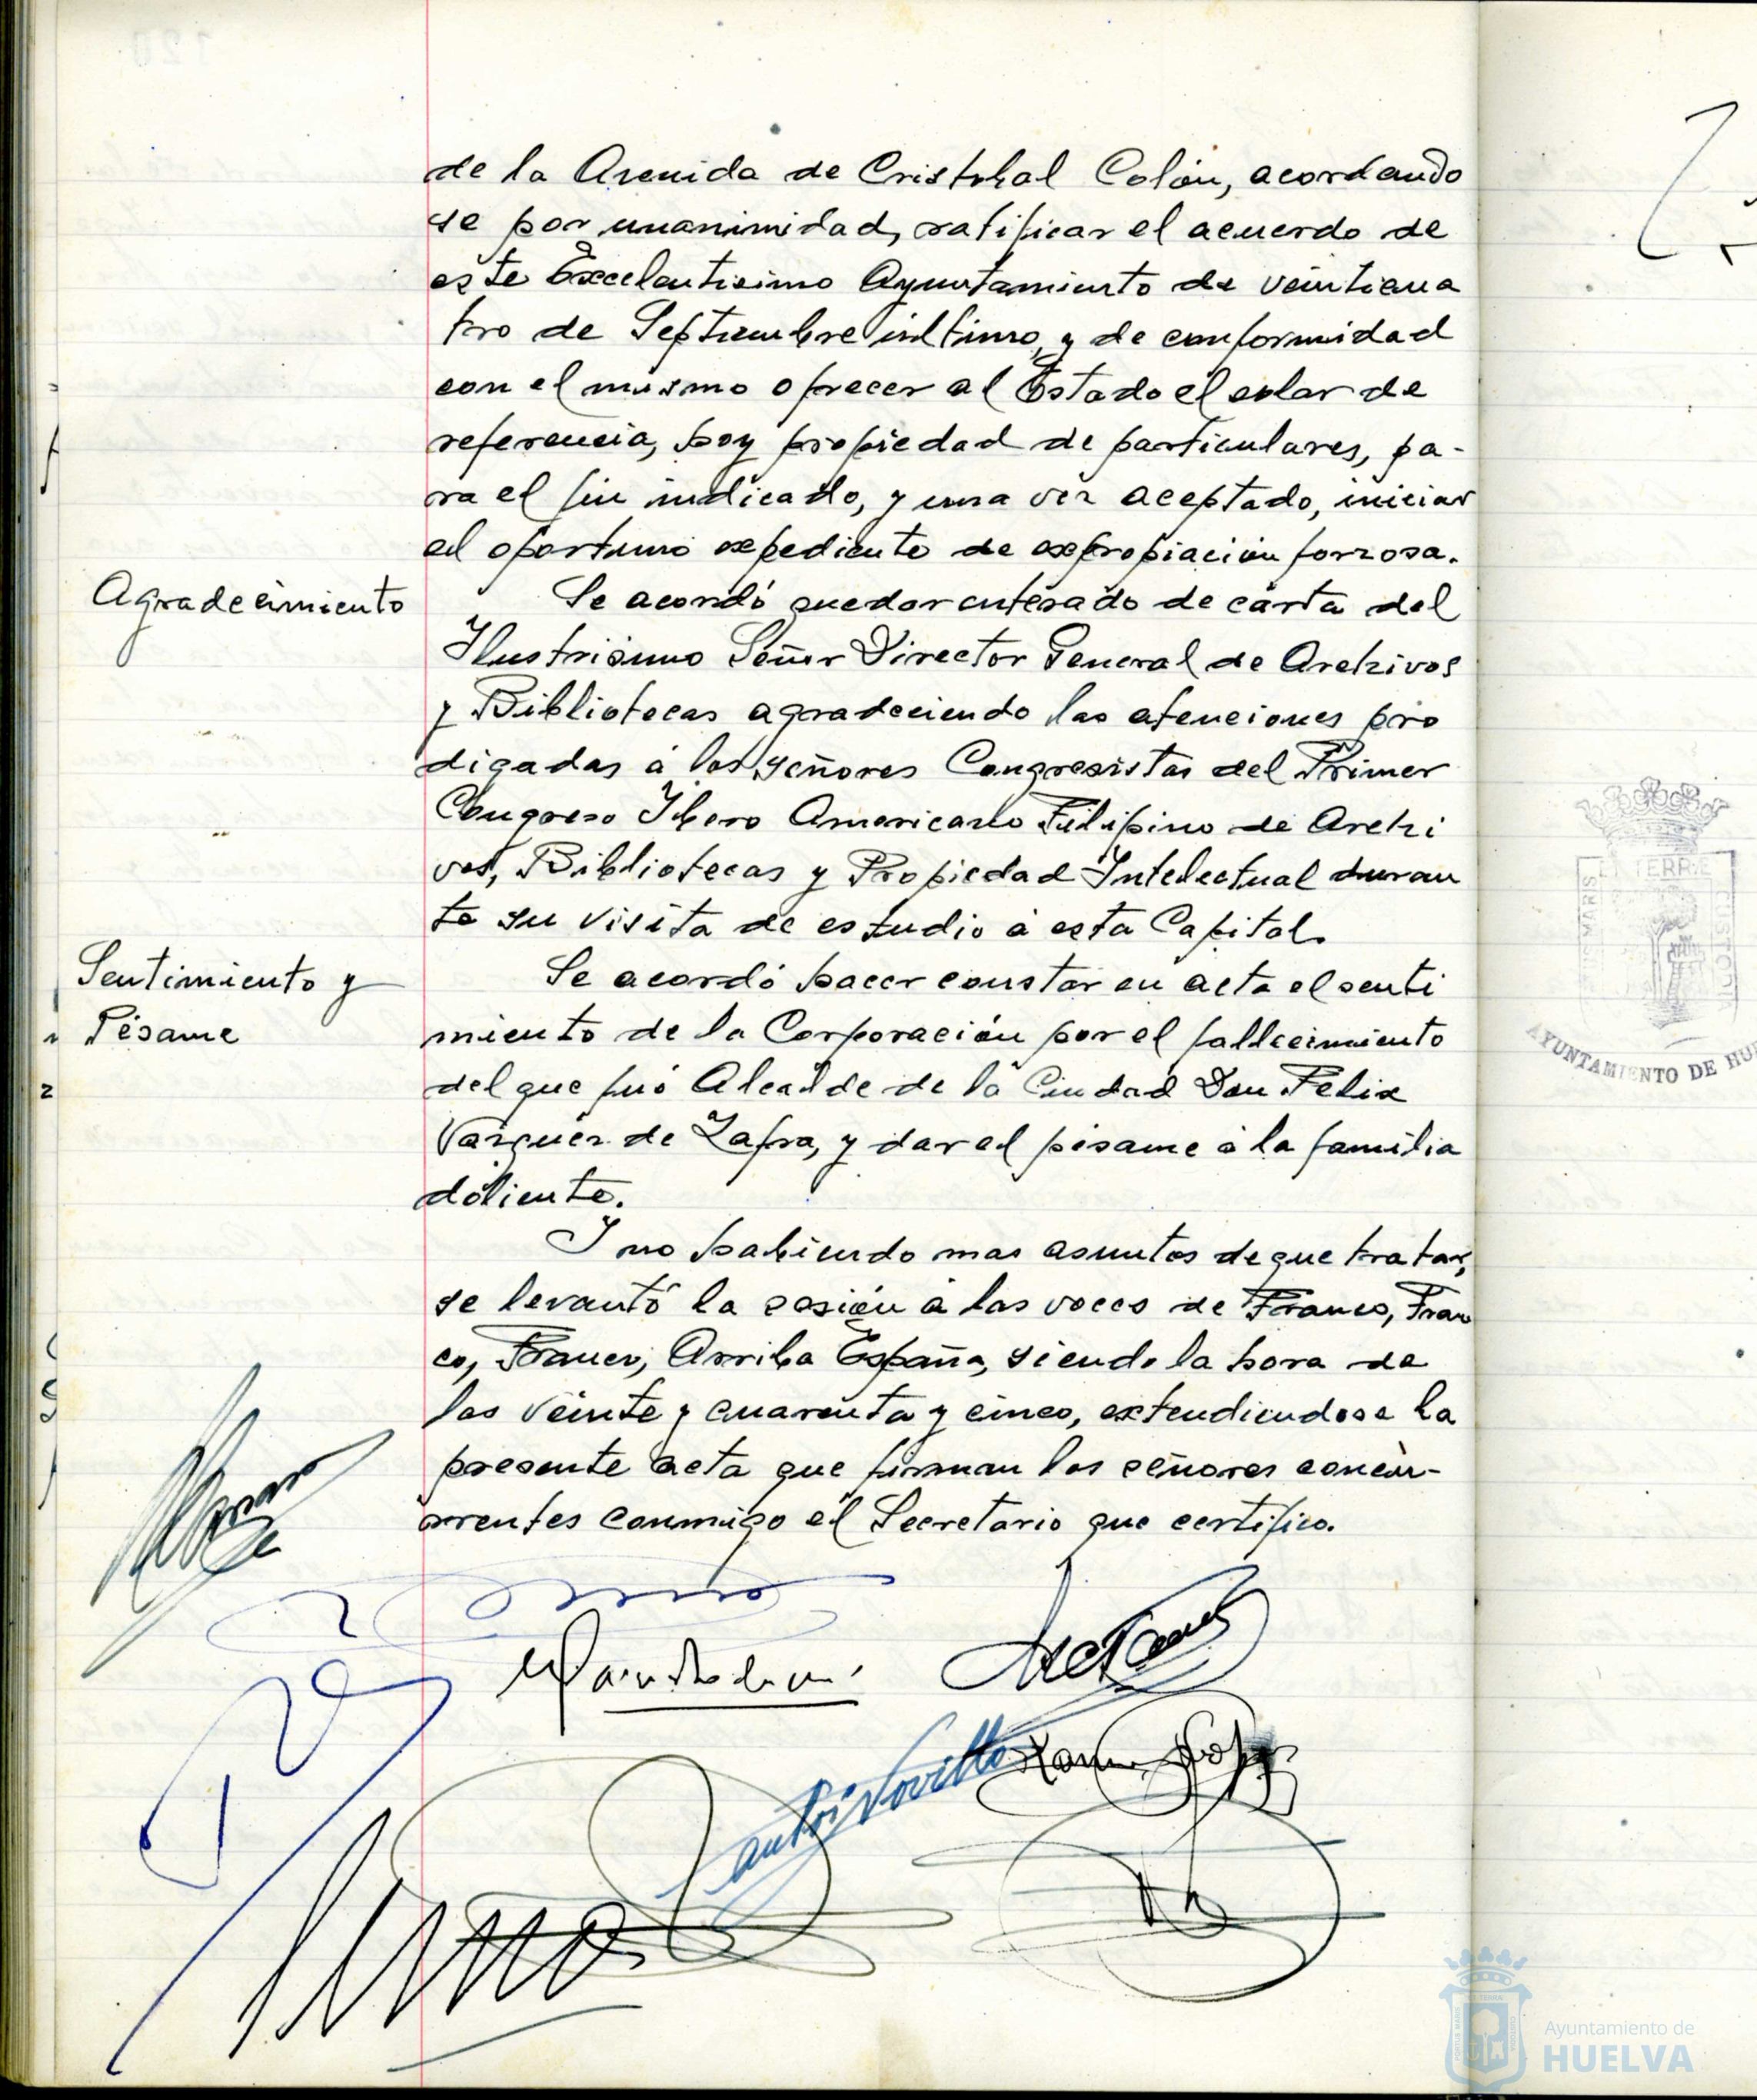 de la Avenida de Cristobal Colón, acordando
se por unanimidad, ratificar el acuerdo de
este Excelentisimo Ayuntamiento de veinticua
tro de Septiembre último, y de conformidad
con el mismo ofrecer al Estado el solar de
referencia, hoy propiedad de particulares, pa-
ra el fin indicado, y una vez aceptado, iniciar
el oportuno expediente de expropiación forzosa.
Agradecimiento
Se acordó quedar enterado de carta del
Ilustrisimo Señor Director General de Archivos
y Bibliotecas agradeciendo las atenciones pro
digadas á los Señores Congresistas del Primer
Congreso Ibero Americano Filipino de Archi
vos, Bibliotecas y Propiedad Intelectual duran
te su visita de estudio á esta Capital.
Sentimiento y
Pésame
Se acordó hacer constar en acta el senti
miento de la Corporación por el fallecimiento
del que fué Alcalde de la Ciudad Don Felix
Vazquez de Zafra, y dar el pésame á la familia
doliente.
Y no habiendo mas asuntos de que tratar,
se levantó la sesión á las voces de Franco, Fran
co, Franco, Arriba España, siendo la hora de
las veinte y cuarenta y cinco, extendiendose la
presente acta que firman los señores concu-
rrentes conmigo el Secretario que certifico.
AYUNTAMIENTO DE HUE
Ayuntamiento de
HUELVA